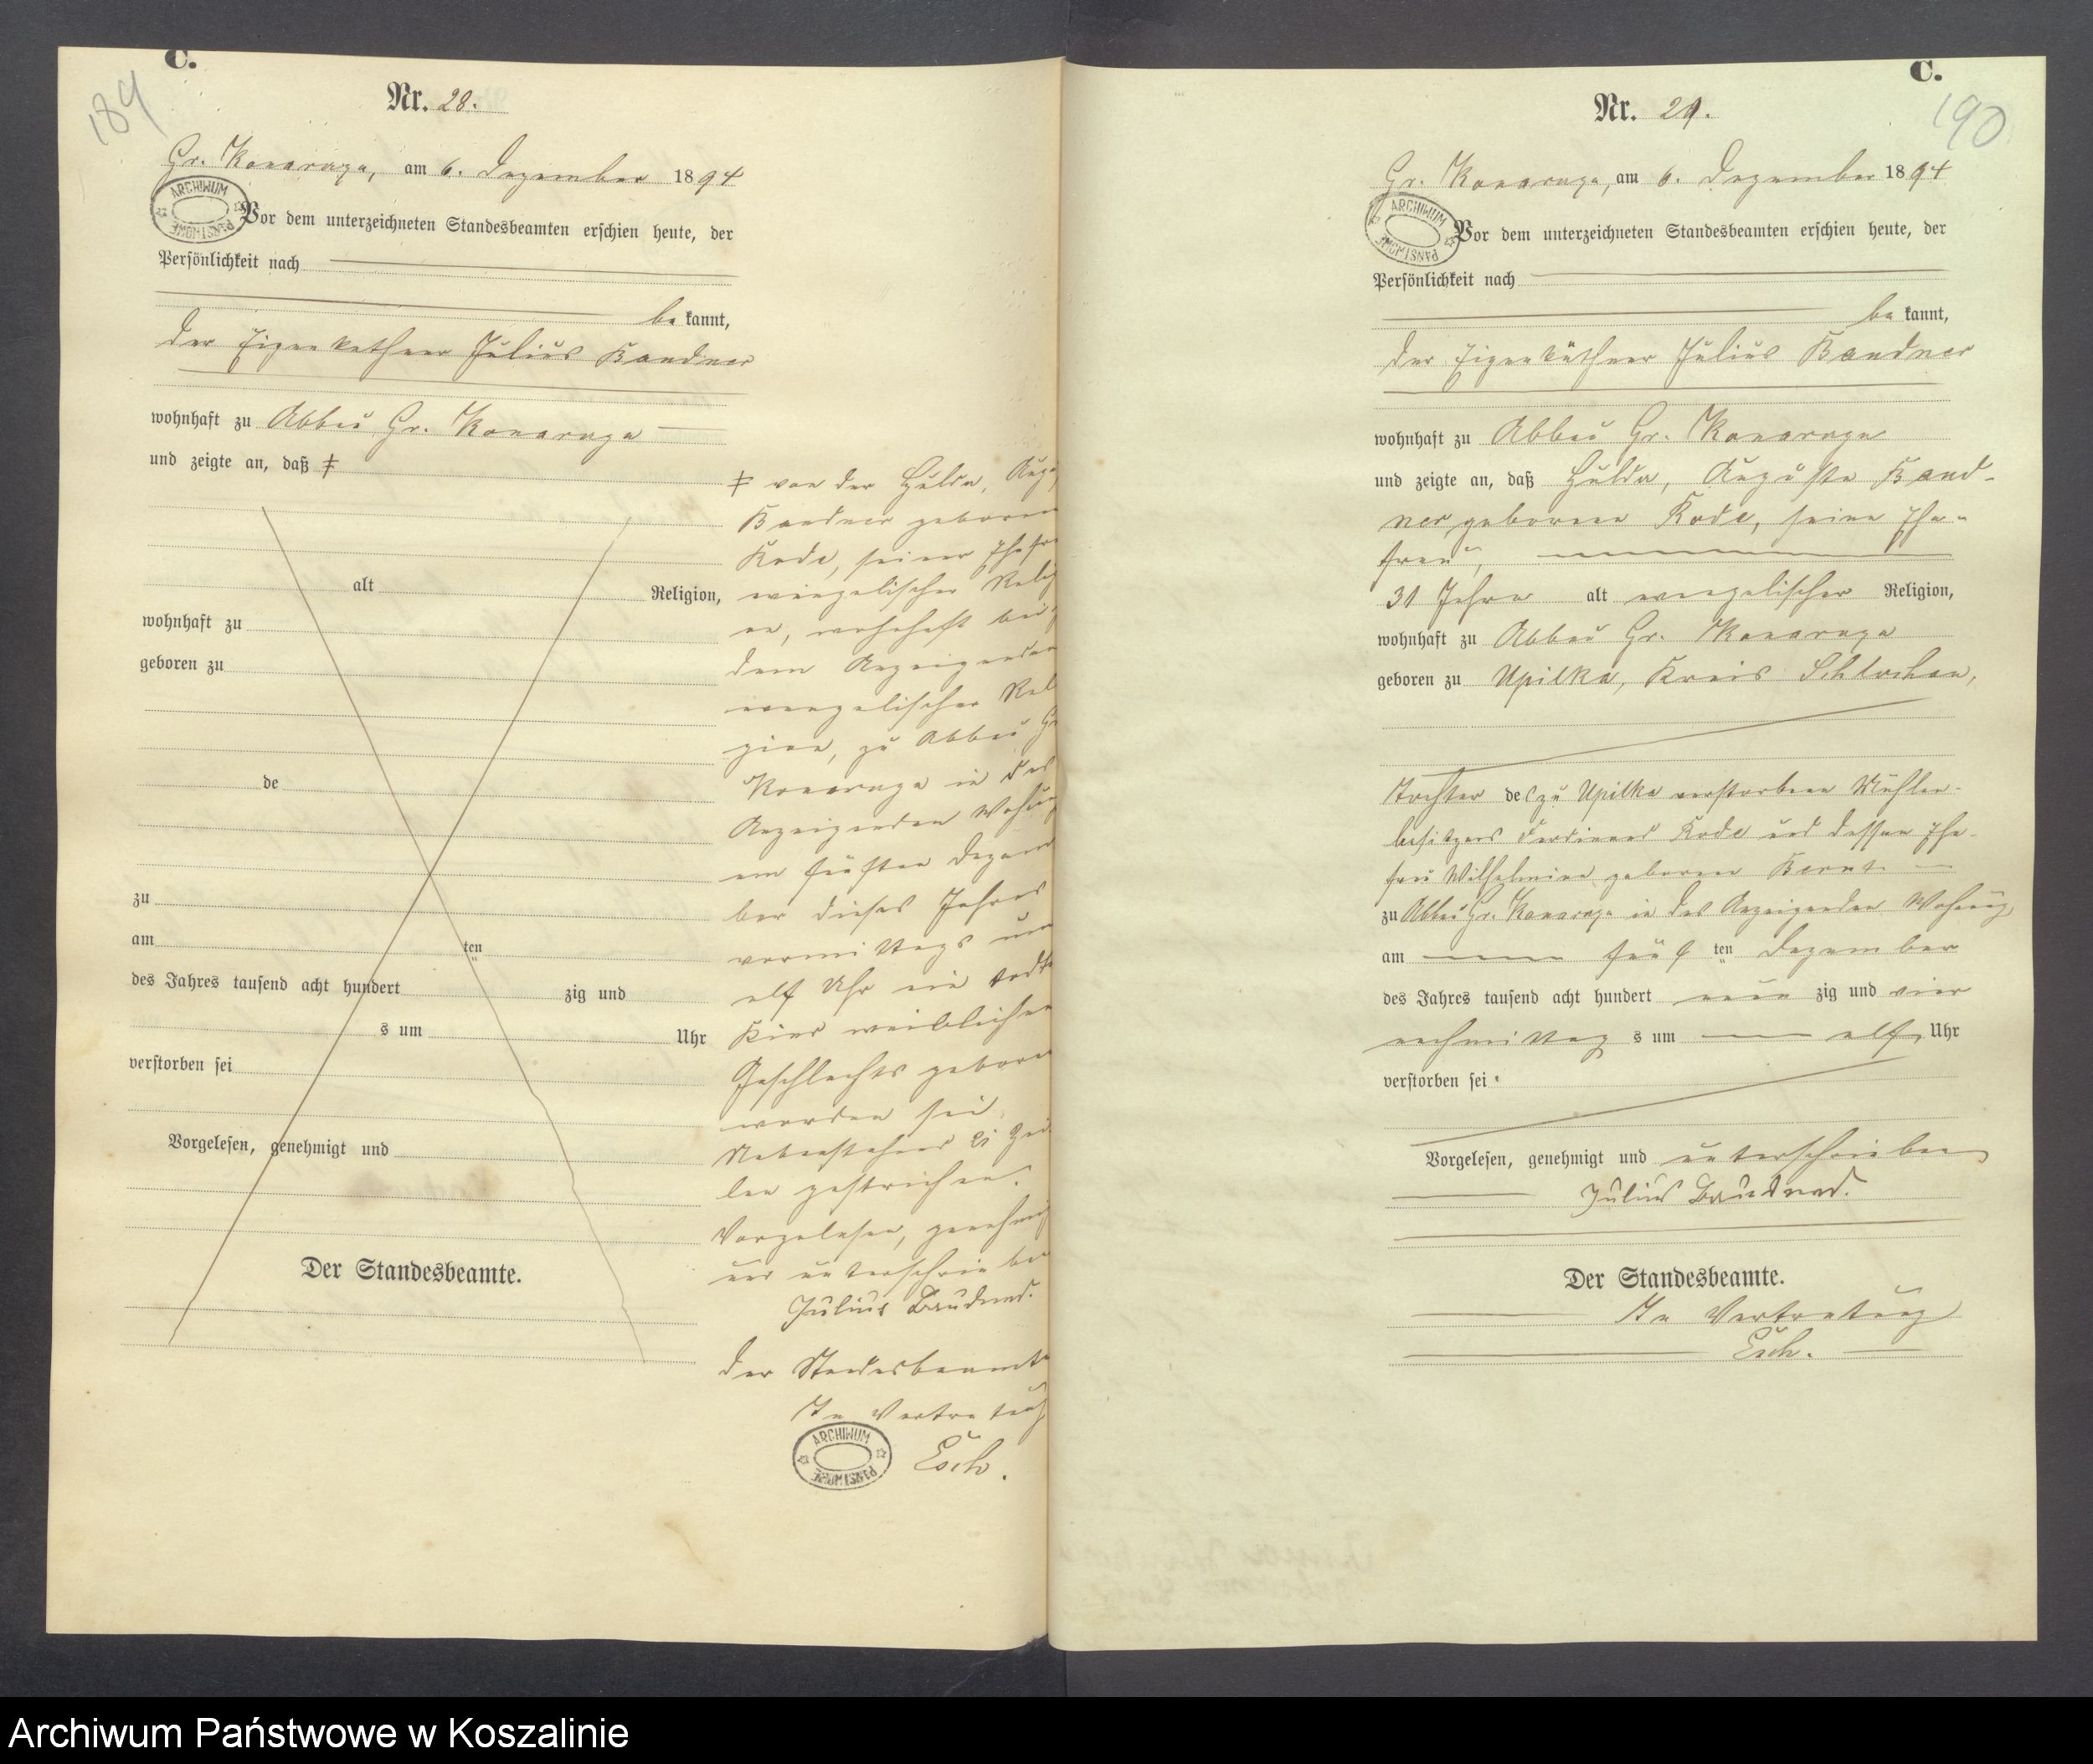 C.
189
Nr. 28.
Gr. Konarczyn, am 6. Dezember 1894
ARCHIWUM PAŃSTWOWE
Vor dem unterzeichneten Standesbeamten erschien heute, der
Persönlichkeit nach
be kannt,
der Eigenkäthner Julius Bandner
wohnhaft zu Abbau Gr. Konarczyn
und zeigte an, daß ‡
alt Religion,
wohnhaft zu
geboren zu
de
zu
am ten
des Jahres tausend acht hundert zig und
s um Uhr
verstorben sei
Vorgelesen, genehmigt und
Der Standesbeamte.
‡ von der Hulda, Aug
Bandner geboren
Rode, seiner Ehefra
evangelischer Relig
on, wohnhaft bei
dem Anzeigenden
evangelischer Reli
gion, zu Abbau Gr
Konarczyn in des
Anzeigenden Wohnung
am fünften Dezem
ber dieses Jahres
vormittags um
elf Uhr ein todtes
Kind weiblichen
Geschlechts geboren
worden sei.
Nebenstehend 21 Zei
len gestrichen.
Vorgelesen, genehmig
und unterschrieben
Julius Bandner.
Der Standesbeamte
In Vertretung
ARCHIWUM PAŃSTWOWE
Esch.
C.
190
Nr. 29.
Gr. Konarczyn, am 6. Dezember 1894
ARCHIWUM PAŃSTWOWE
Vor dem unterzeichneten Standesbeamten erschien heute, der
Persönlichkeit nach
be kannt,
der Eigenkäthner Julius Bandner
wohnhaft zu Abbau Gr. Konarczyn
und zeigte an, daß Hulda, Auguste Band-
ner, geborene Rode, seine Ehe-
frau,
31 Jahre alt evangelischer Religion,
wohnhaft zu Abbau Gr. Konarczyn
geboren zu Upilka, Kreis Schlochau,
Tochter des zu Upilka verstorbenen Mühlen-
besitzers Ferdinand Rode und dessen Ehe-
frau Wilhelmine geborene Bernt
zu Abbau Gr. Konarczyn in des Anzeigenden Wohnung
am fünf ten Dezember
des Jahres tausend acht hundert neun zig und vier
nachmittag s um elf Uhr
verstorben sei.
Vorgelesen, genehmigt und unterschrieben
Julius Bandner.
Der Standesbeamte.
In Vertretung
Esch.
Archiwum Państwowe w Koszalinie